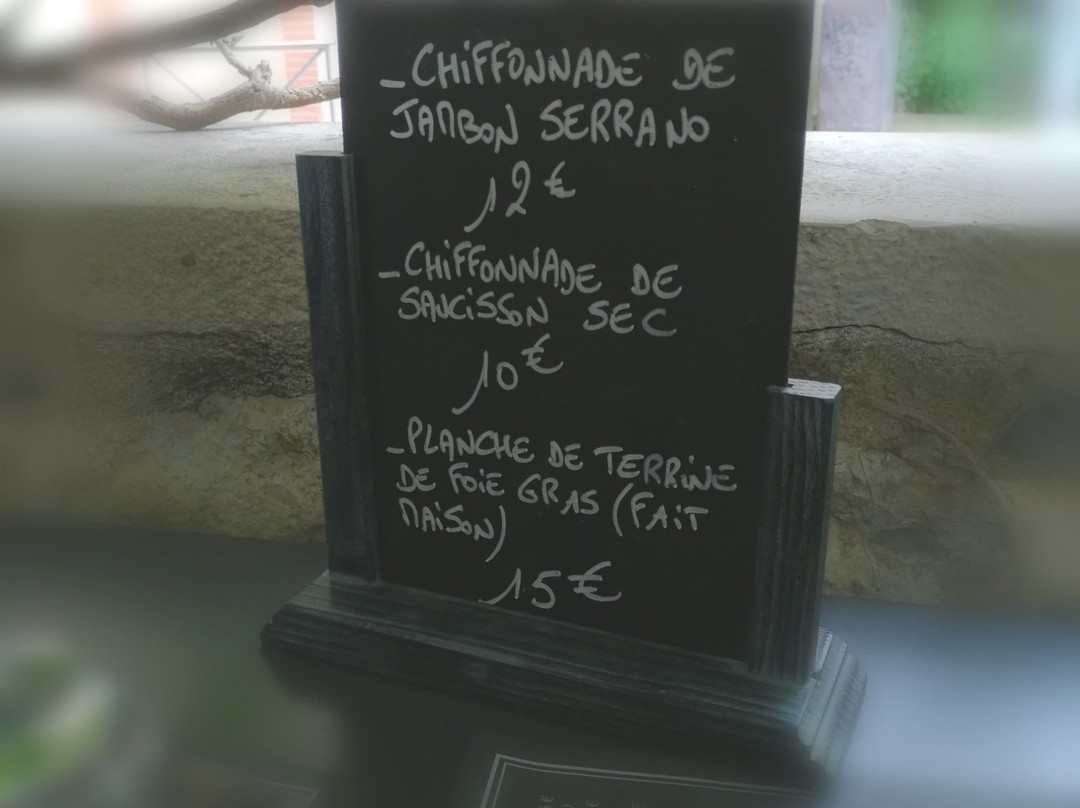 - CHIFFONNADE DE
JAMBON SERRANO
12€
- CHIFFONNADE DE
SAUCISSON SEC
10€
- PLANCHE DE TERRINE
DE FOIE GRAS (FAIT
MAISON)
15€